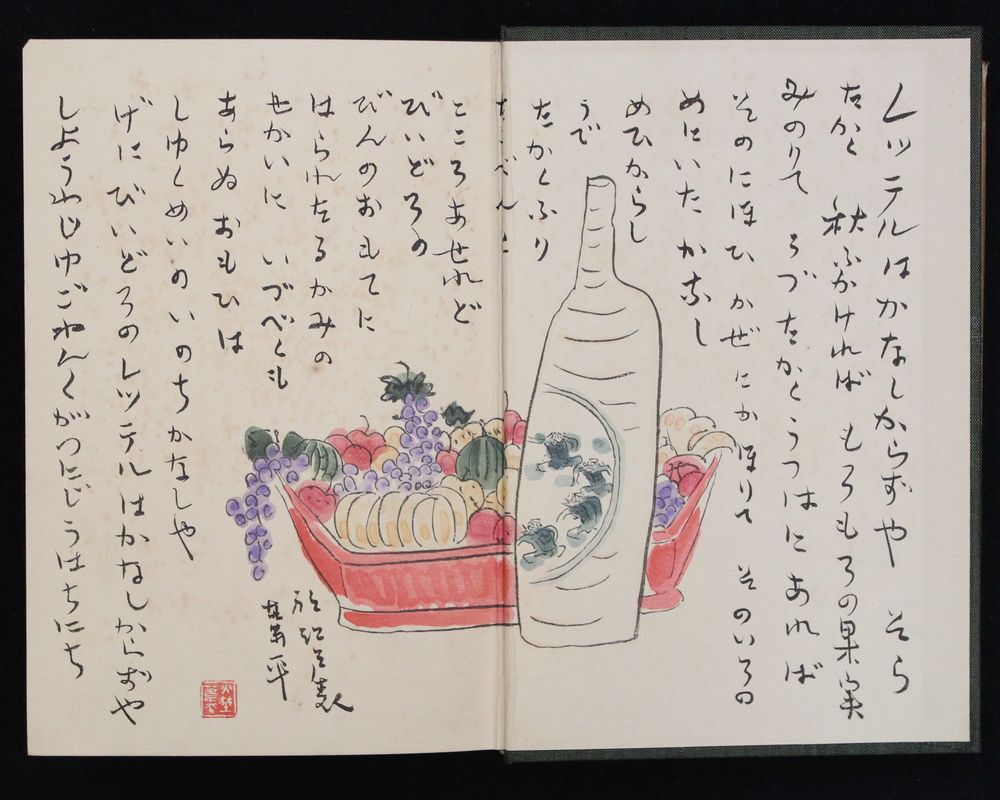 レッテルはかなしからずや そら
たかく 秋ふかければ もろもろの果実
みのりて うづたかくうつはにあれば
そのにほひ かぜにかほりて そのいろの
めにいたかなし
めひからし
うで
たかくふり
べんと
こころあせれど
びいどろの
びんのおもてに
はられたるかみの
せかいに いづべくも
あらぬ おもひは
しゆくめいのいのちかなしや
げにびいどろのレッテルはかなしからずや
しようわじゆごねんくがつにじうはちにち
葦平
火野葦平